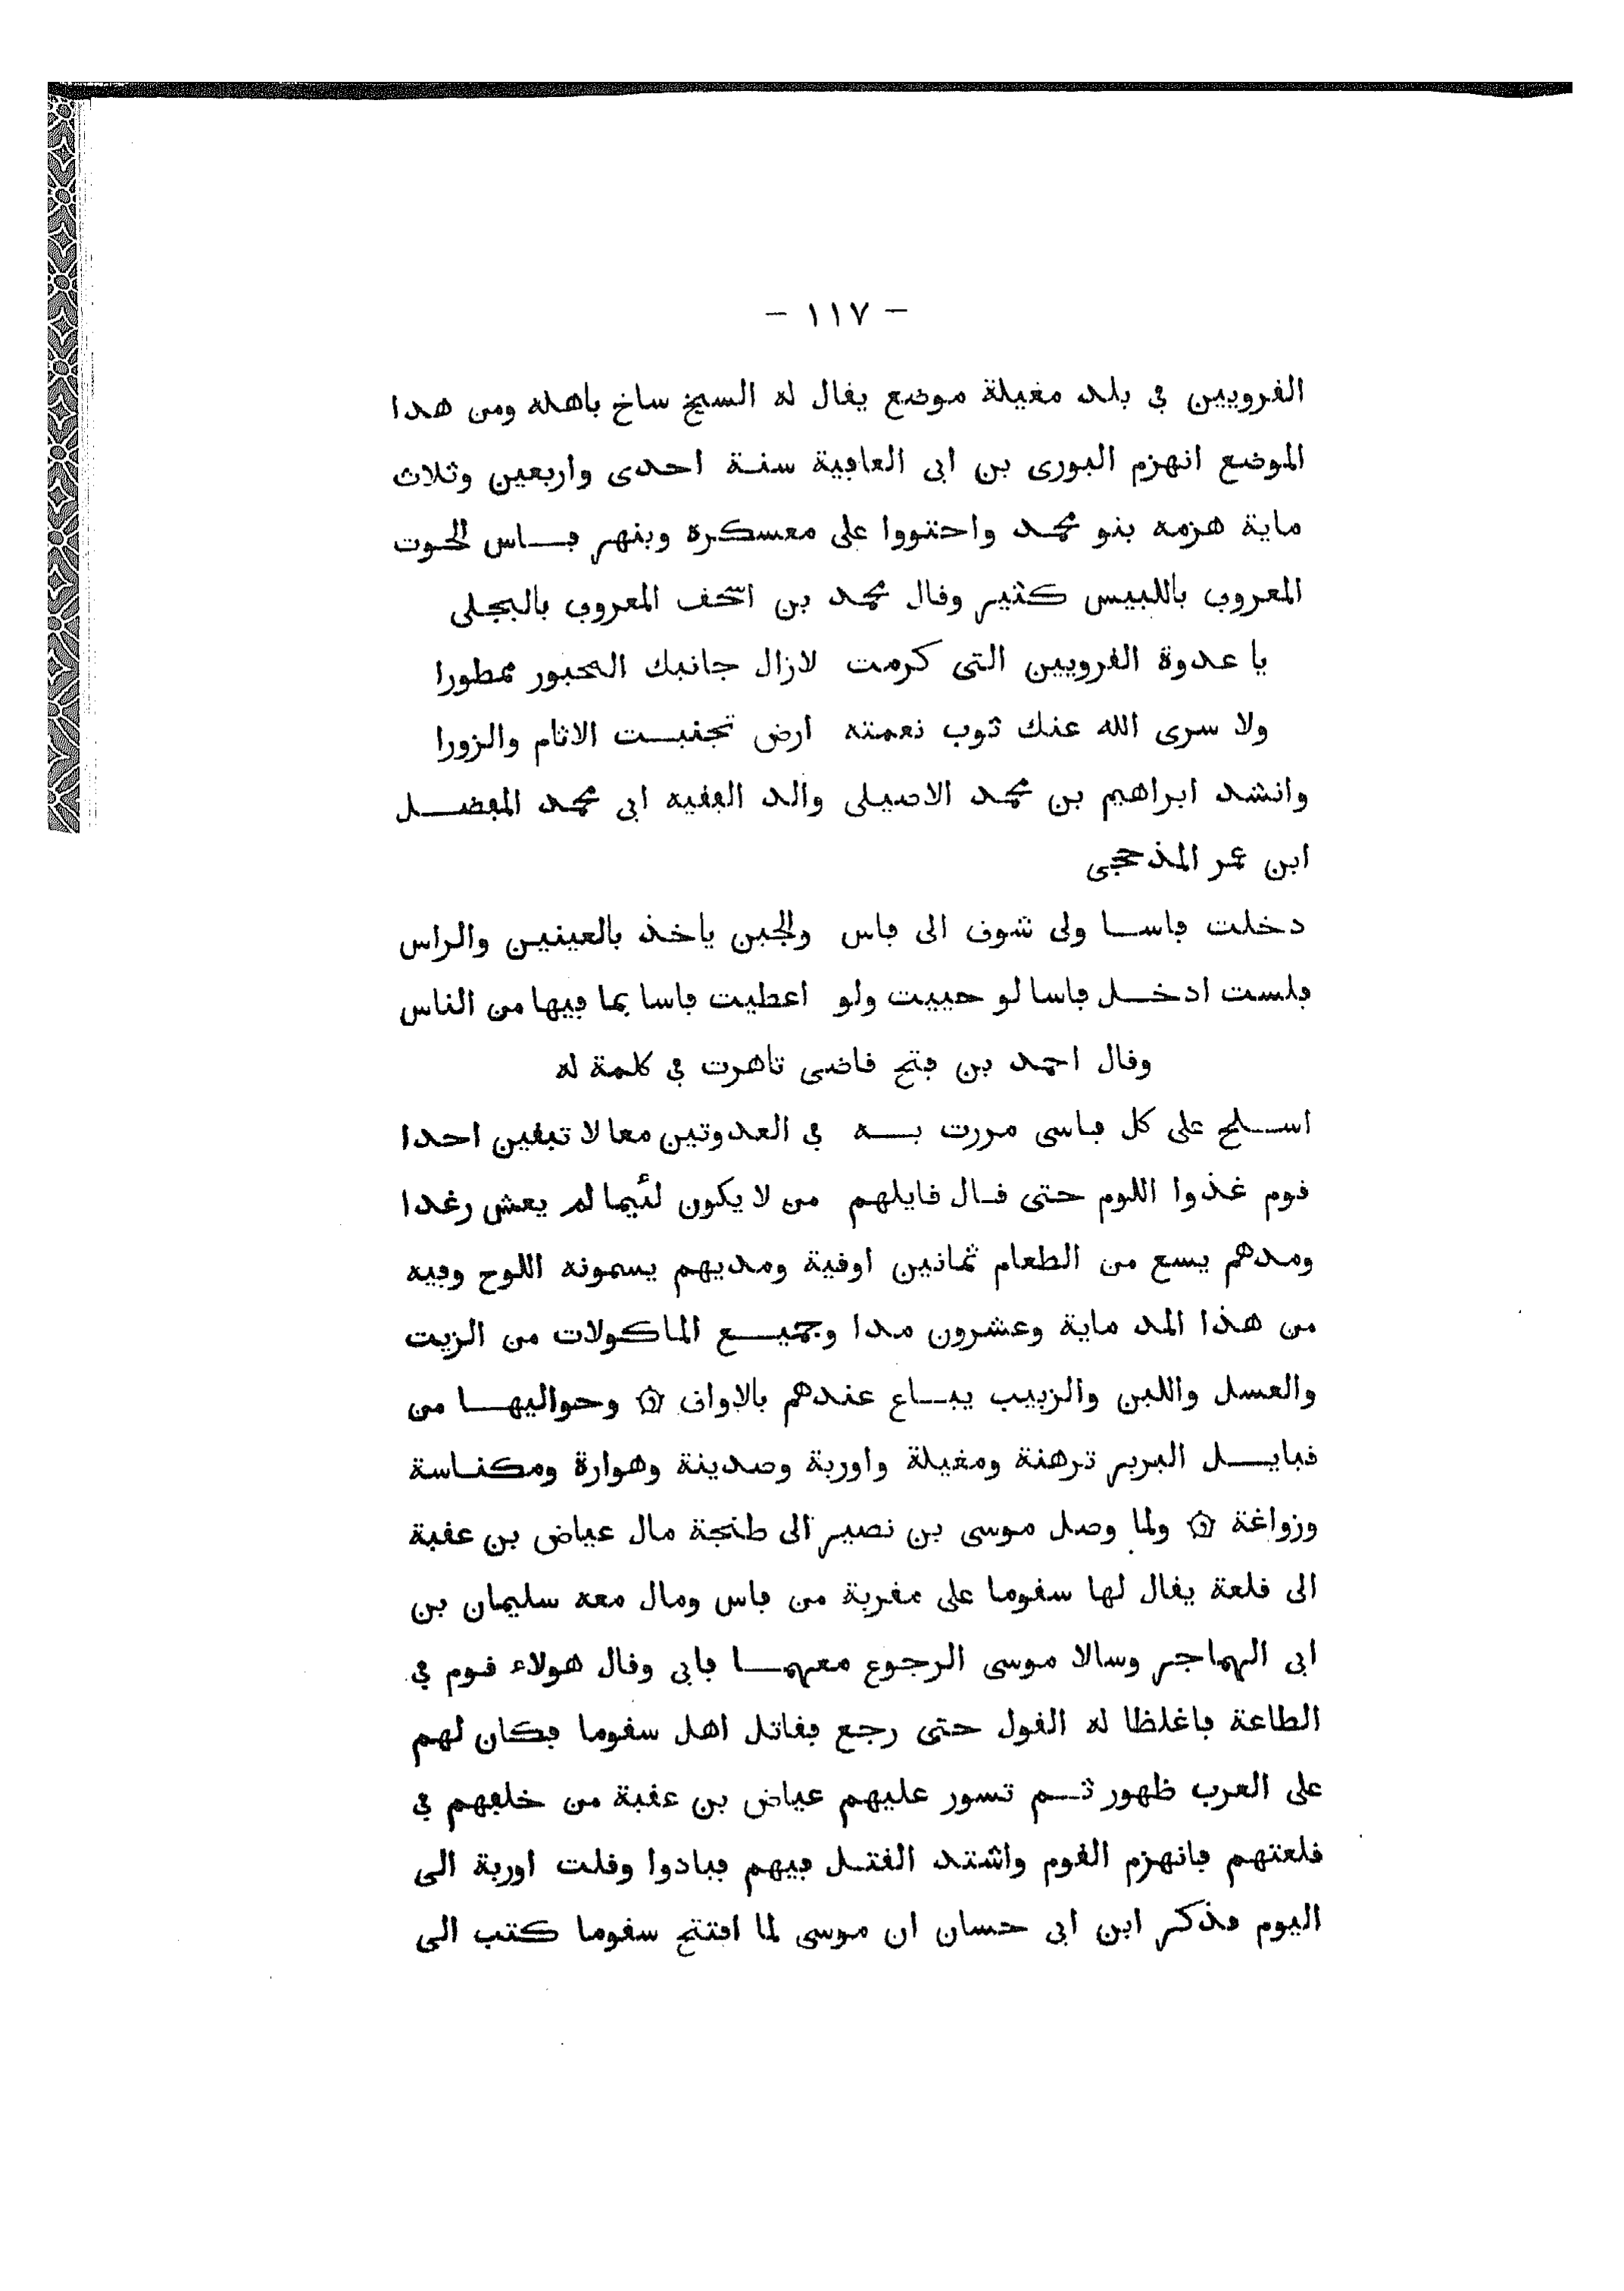 – ١١٧ –
القرويين في بلد مغيلة موضع يقال له السيخ ساخ باهله ومن هدا
الموضع انهزم البورى بن ابى العافية سنة احدى واربعين وثلاث
ماية هزمه بنو محمد واحتووا على معسكره وبنهر فاس الحوت
المعروف باللبيس كثير وقال محمد بن اسحق المعروف بالبجلى
يا عدوة القرويين التى كرمت لازال جانبك المحبور ممطورا
ولا سرى الله عنك ثوب نعمته ارض تجنبت الاثام والزورا
وانشد ابراهيم بن محمد الاصيلى والد الفقيه ابى محمد المفضل
ابن عمر المذحجى
دخلت فاسا ولى شوق الى فاس والجبن ياخذ بالعينين والراس
فلست ادخل فاسا لو حييت ولو اعطيت فاسا بما فيها من الناس
وقال احمد بن فتح قاضى تاهرت في كلمة له
اسلح على كل فاسى مررت به في العدوتين معا لا تبقين احدا
قوم غذوا اللوم حتى قال قايلهم من لا يكون لئيما لم يعش رغدا
ومدهم يسع من الطعام ثمانين اوقية ومديهم يسمونه اللوح وفيه
من هذا المد ماية وعشرون مدا وجميع الماكولات من الزيت
والعسل واللبن والزبيب يباع عندهم بالاواق ۞ وحواليها من
قبايل البربر ترهنة ومغيلة واوربة وصدينة وهوارة ومكناسة
وزواغة ۞ ولما وصل موسى بن نصير الى طنجة مال عياض بن عقبة
الى قلعة يقال لها سقوما على مقربة من فاس ومال معه سليمان بن
ابى المهاجر وسالا موسى الرجوع معهما فابى وقال هولاء قوم في
الطاعة فاغلظا له القول حتى رجع فقاتل اهل سقوما فكان لهم
على العرب ظهور ثم تسور عليهم عياض بن عقبة من خلفهم في
قلعتهم فانهزم القوم واشتد القتل فيهم فبادوا وقلت اوربة الى
اليوم فذكر ابن ابى حسان ان موسى لما افتتح سقوما كتب الى